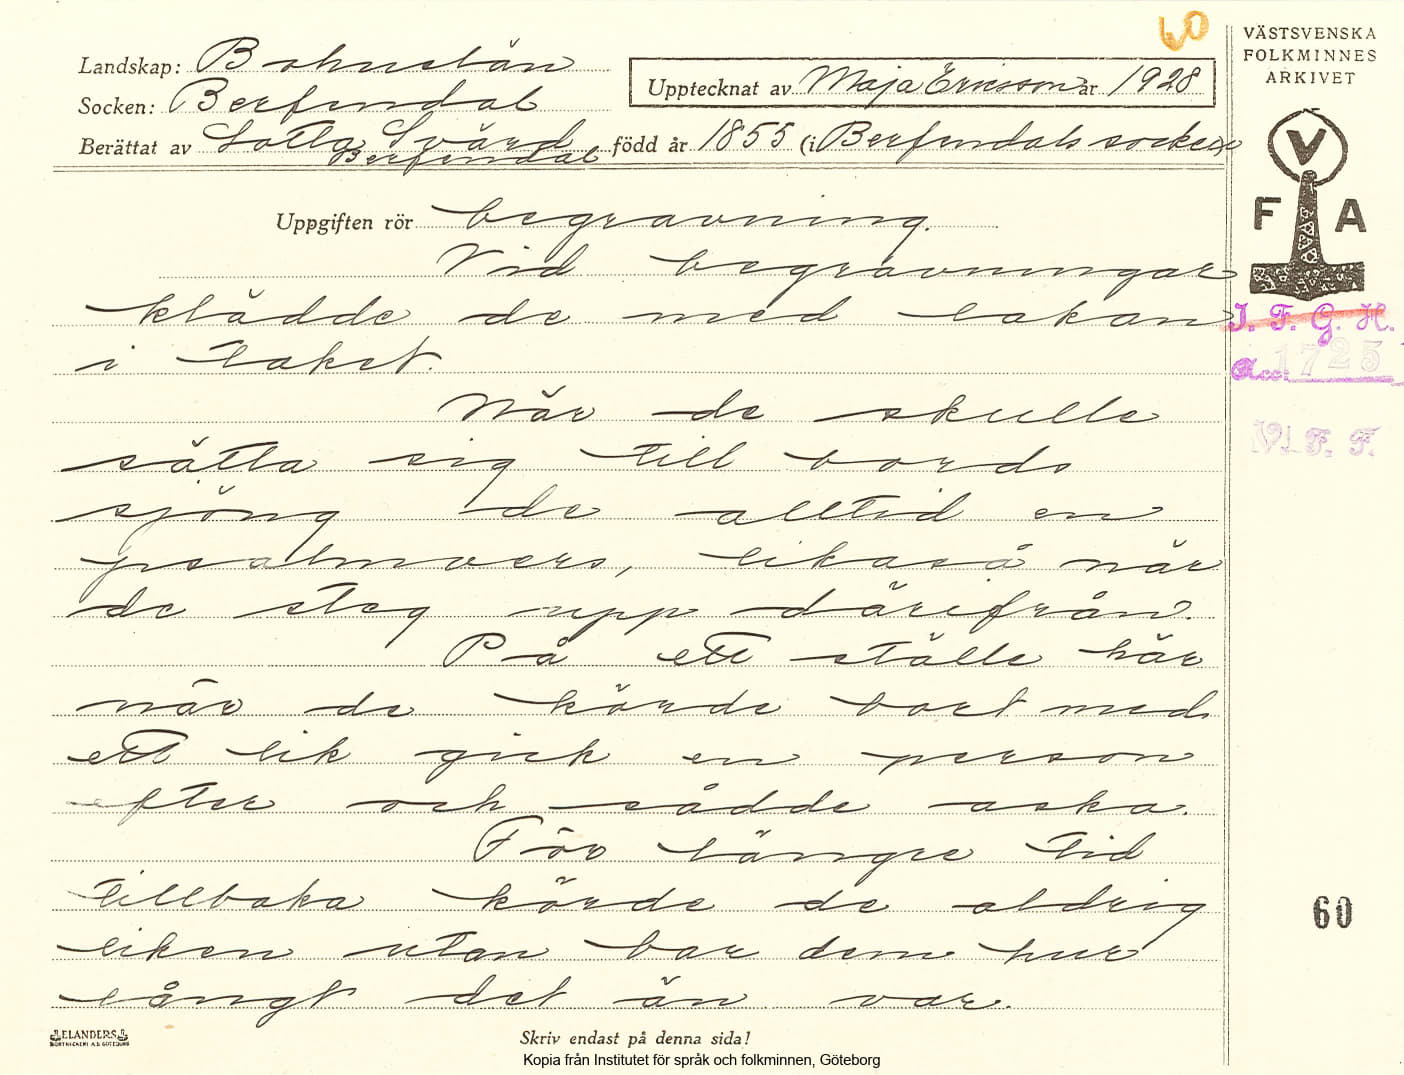 60
VÄSTSVENSKA
FOLKMINNES
ARKIVET
Landskap: Bohuslän
Upptecknat av Maja Ericsson år 1928
Socken: Berfendal
Berättat av Lotta Svärd född år 1855 (i Berfendals socken
Berfendal
V
F A
Uppgiften rör begravning.
Vid begravningar
klädde de med lakan
i taket.
I. F. G. H.
Acc: 1725
V. F. F.
När de skulle
sätta sig till bords
sjöng de alltid en
psalmvers, likaså när
de steg upp därifrån.
På ett ställe här
när de körde bort med
ett lik gick en person
efter och sådde aska.
För längre tid
tillbaka körde de aldrig
liken utan bar dem hur
långt det än var.
60
ELANDERS
BOKTRYCKERI A.B. GÖTEBORG
Skriv endast på denna sida!
Kopia från Institutet för språk och folkminnen, Göteborg